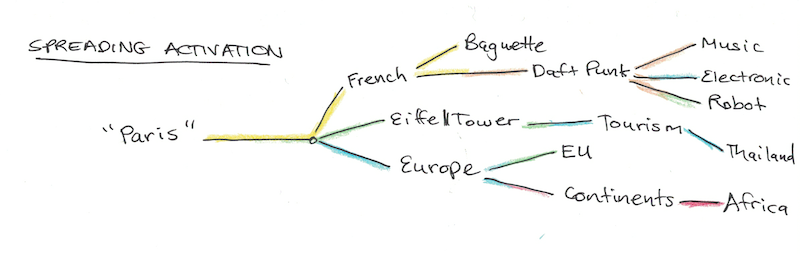 SPREADING ACTIVATION
"Paris"
French
Baguette
Daft Punk
Music
Electronic
Robot
Eiffel Tower
Tourism
Thailand
Europe
EU
Continents
Africa